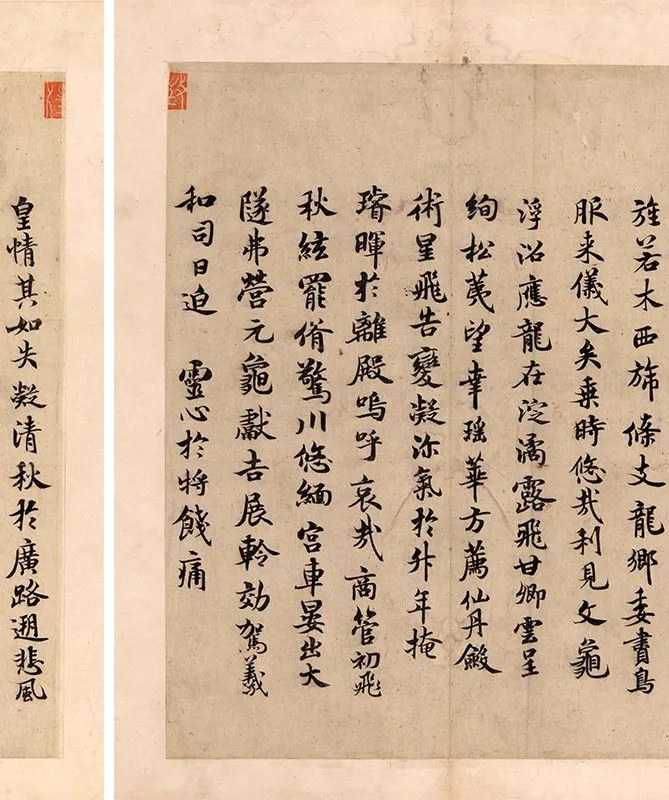 旌若木西旆條支龍鄉委書鳥
服来儀大矣乗時悠哉利見文龜
浮沼應龍在淀濡露飛甘卿雲呈
絢松荑望幸瑶華方薦仙丹斂
術星飛告變凝沴氣於升年掩
璿暉於離殿嗚呼哀哉商管初飛
秋紘罷脩驚川悠緬宮車晏出大
隧弗營元龜獻吉展軨効駕羲
和司日迫 靈心於將餞痛
皇情其如失凝清秋於廣路遡悲風